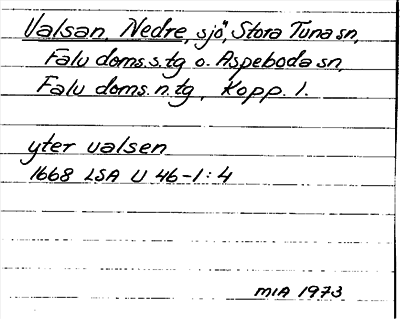 Valsan, Nedre, sjö, Stora Tuna sn,
Falu doms. s. tg o. Aspeboda sn,
Falu doms. n. tg, Kopp. l.
yter valsen
1668 LSA U 46-1:4
MIA 1973